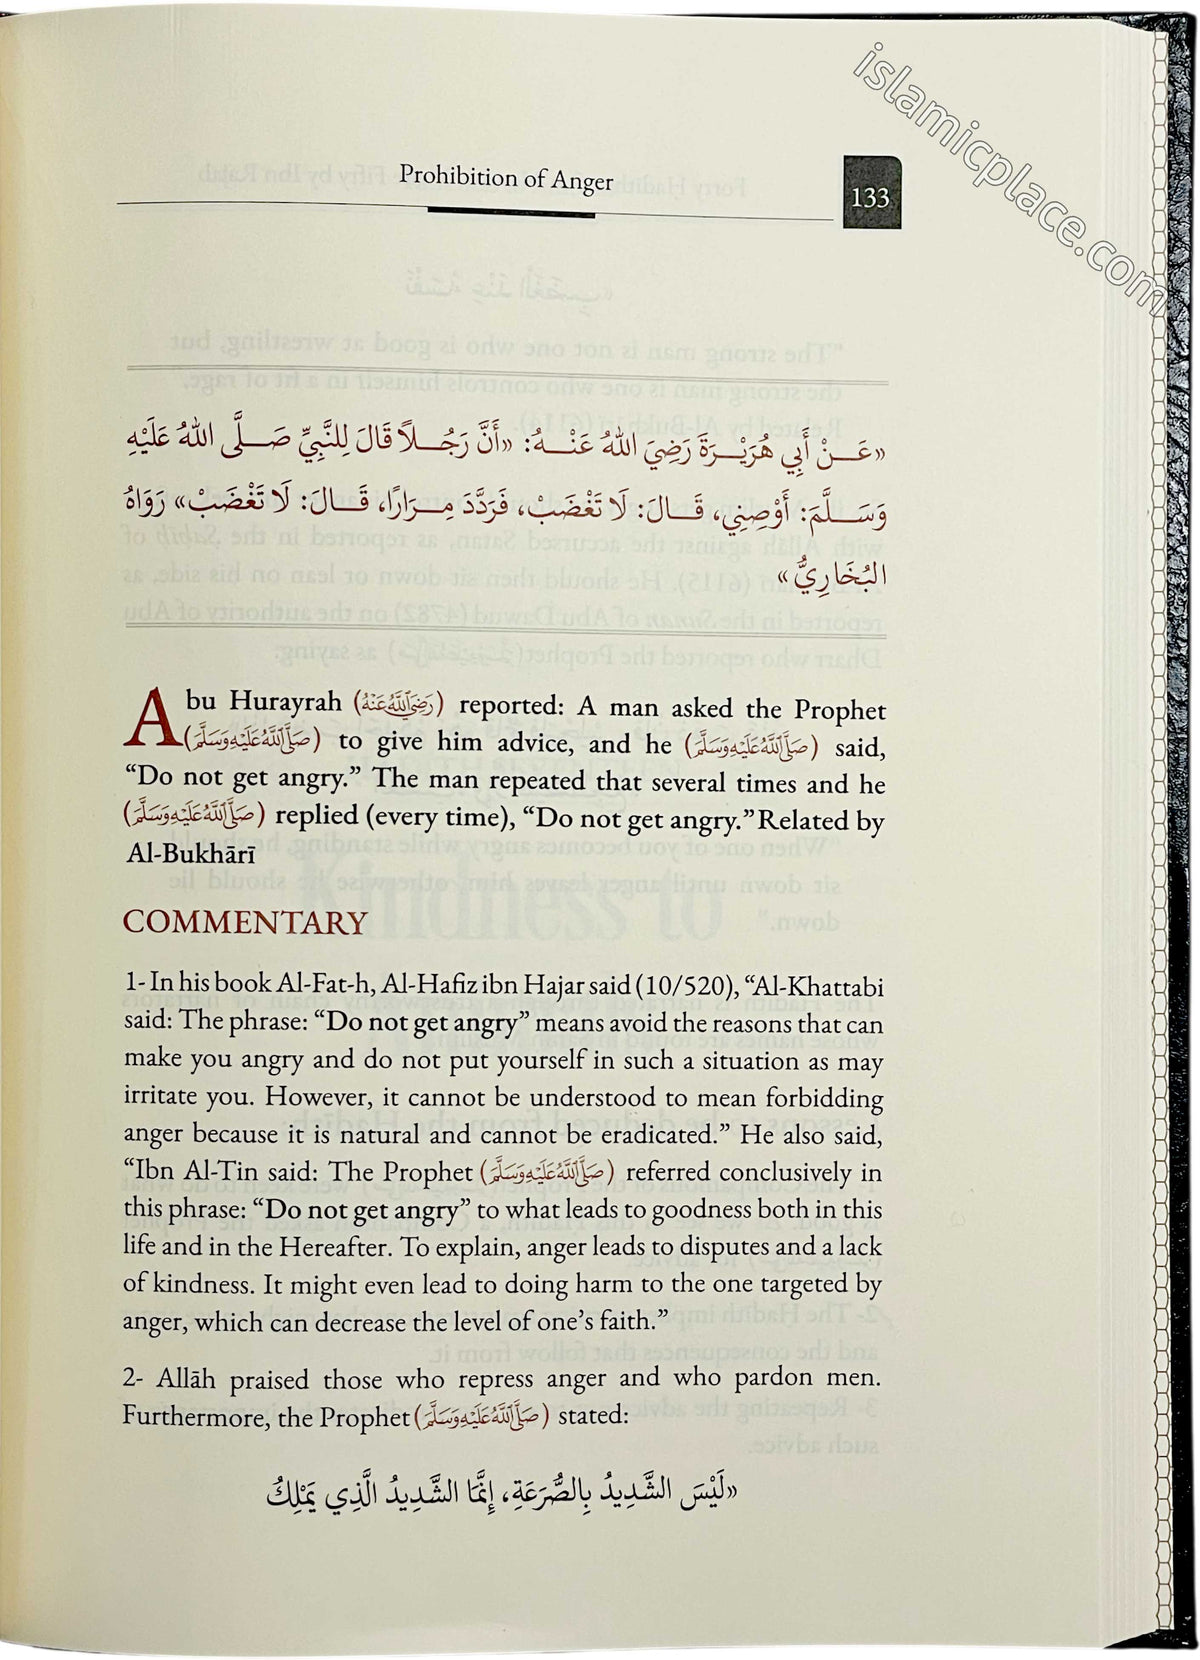 islamicplace.com
Prohibition of Anger
133
«عَـــنْ أَبِي هُرَيْـــرَةَ رَضِيَ اللهُ عَنْـــهُ: «أَنَّ رَجُـــلاً قَالَ لِلنَّبِيِّ صَـــلَّى اللهُ عَلَيْهِ
وَسَـــلَّمَ: أَوْصِنِي، قَـــالَ: لَا تَغْضَبْ، فَرَدَّدَ مِـــرَارًا، قَـــالَ: لَا تَغْضَبْ» رَوَاهُ
البُخَارِيُّ»
Abu Hurayrah (رَضِيَ اللَّهُ عَنْهُ) reported: A man asked the Prophet
(صَلَّى اللَّهُ عَلَيْهِ وَسَلَّمَ) to give him advice, and he (صَلَّى اللَّهُ عَلَيْهِ وَسَلَّمَ) said,
“Do not get angry.” The man repeated that several times and he
(صَلَّى اللَّهُ عَلَيْهِ وَسَلَّمَ) replied (every time), “Do not get angry.” Related by
Al-Bukhārī
COMMENTARY
1- In his book Al-Fat-h, Al-Hafiz ibn Hajar said (10/520), “Al-Khattabi
said: The phrase: “Do not get angry” means avoid the reasons that can
make you angry and do not put yourself in such a situation as may
irritate you. However, it cannot be understood to mean forbidding
anger because it is natural and cannot be eradicated.” He also said,
“Ibn Al-Tin said: The Prophet (صَلَّى اللَّهُ عَلَيْهِ وَسَلَّمَ) referred conclusively in
this phrase: “Do not get angry” to what leads to goodness both in this
life and in the Hereafter. To explain, anger leads to disputes and a lack
of kindness. It might even lead to doing harm to the one targeted by
anger, which can decrease the level of one’s faith.”
2- Allāh praised those who repress anger and who pardon men.
Furthermore, the Prophet (صَلَّى اللَّهُ عَلَيْهِ وَسَلَّمَ) stated:
«لَيْسَ الشَّدِيدُ بِالصُّرَعَةِ، إِنَّمَا الشَّدِيدُ الَّذِي يَمْلِكُ